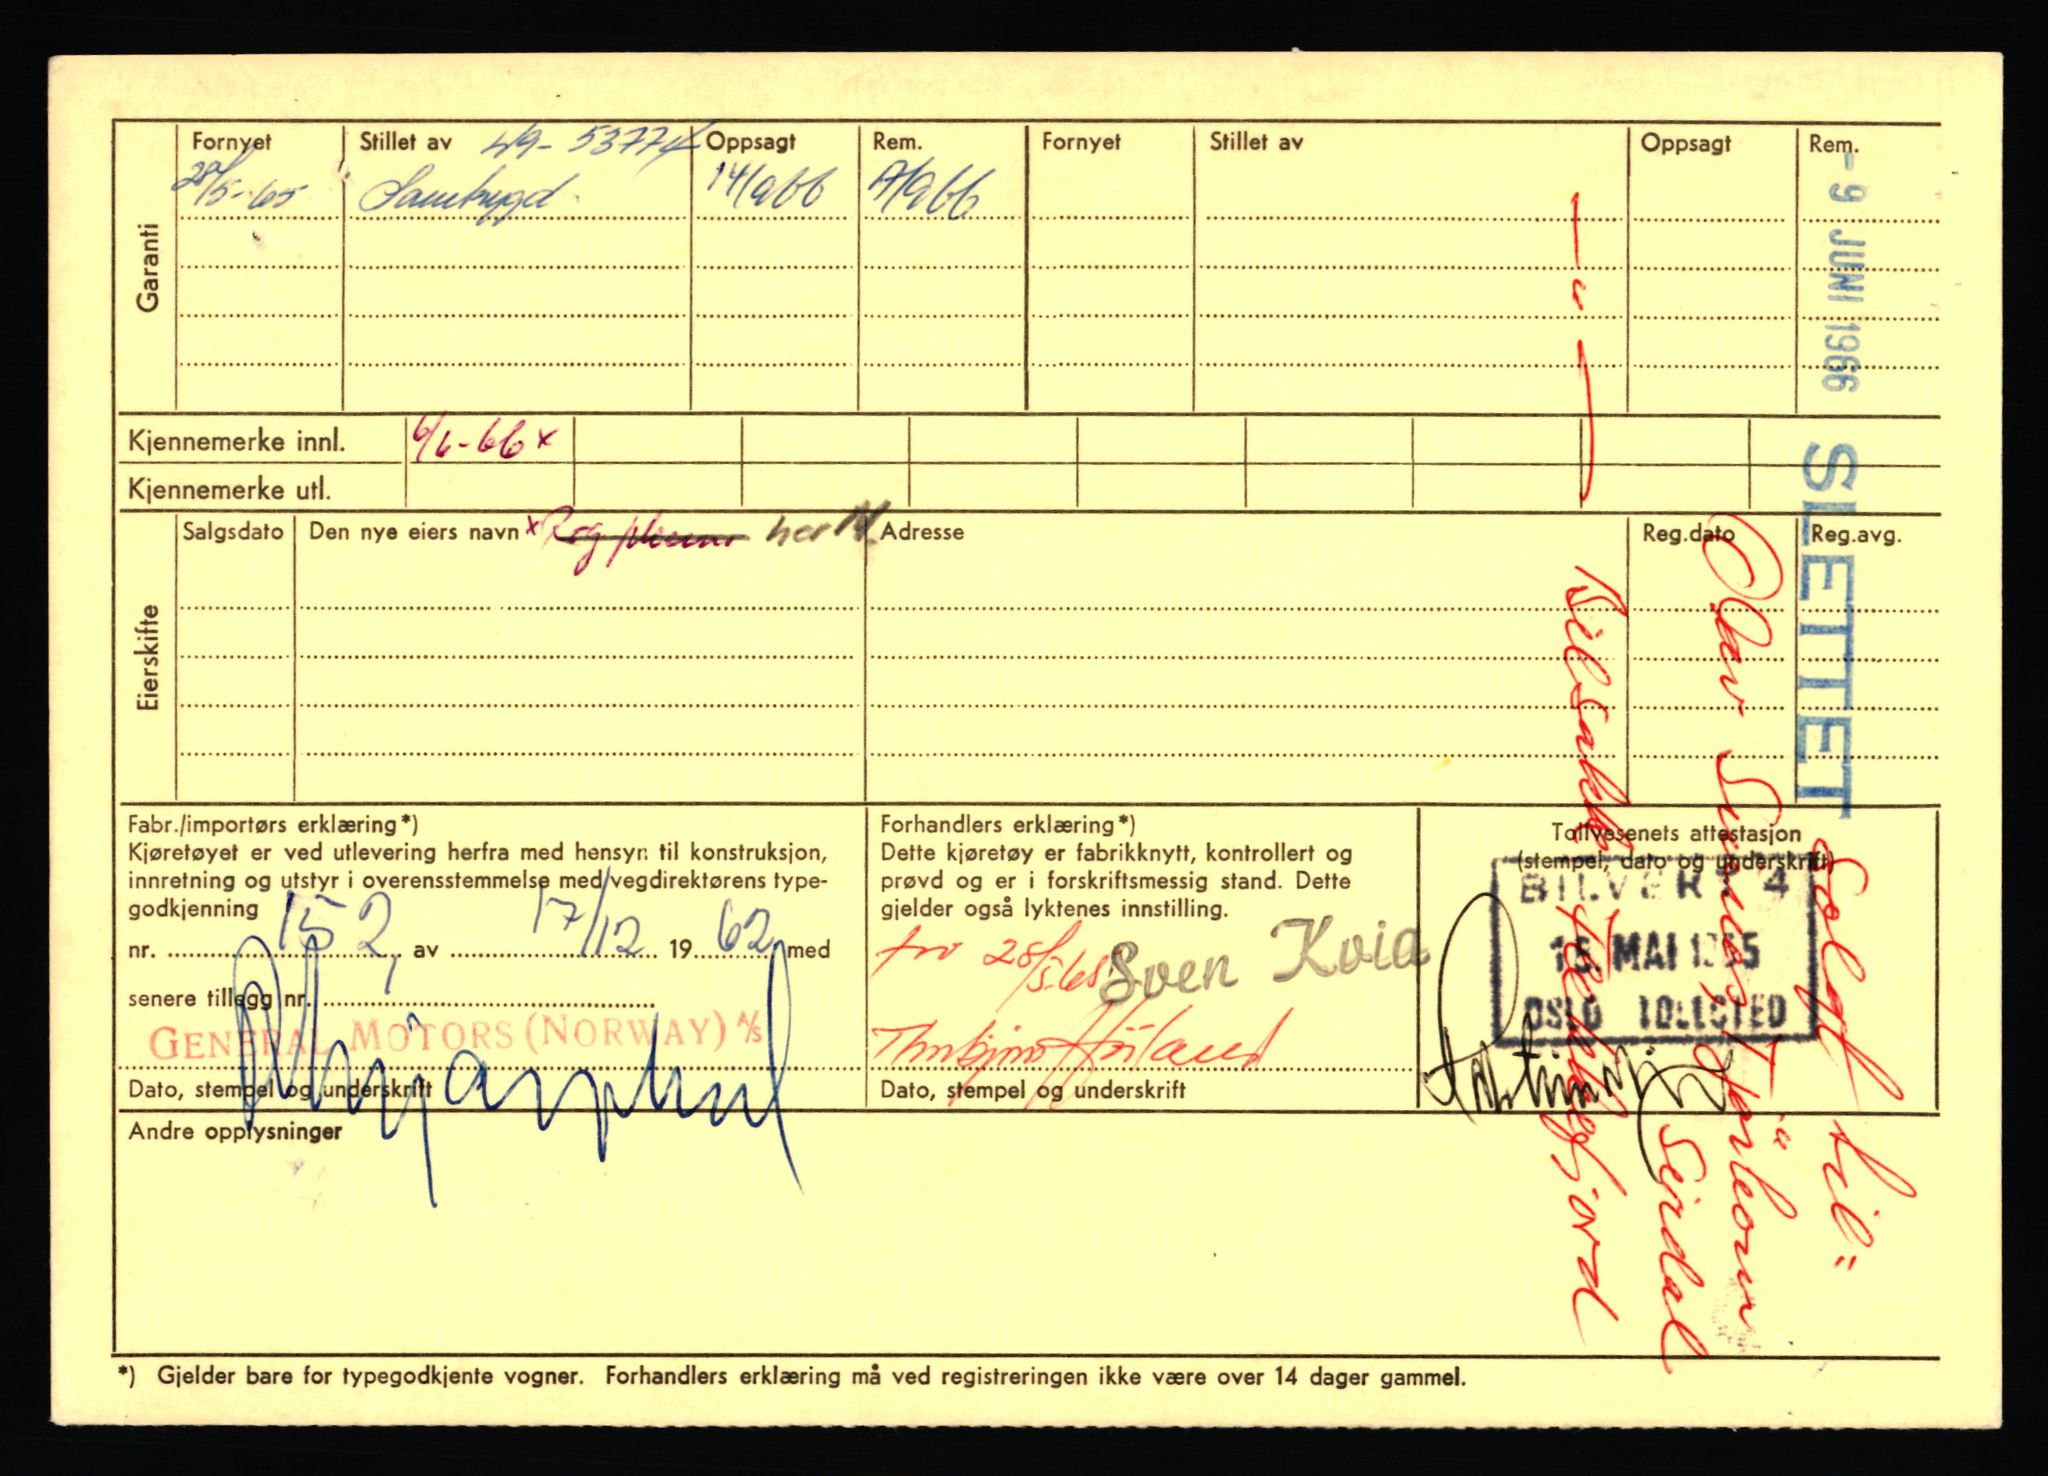 Garanti
Fornyet Stillet av 49-53774 Oppsagt Rem. Fornyet Stillet av Oppsagt Rem.
28/5-65 Samtrygd 14/9 66 A/9 66
- 9 JUNI 1966
Kjennemerke innl. 6/6-66 x
Kjennemerke utl.
SLETTET
Eierskifte
Salgsdato Den nye eiers navn x her Adresse Reg.dato Reg.avg.
Fabr./importørs erklæring*)
Kjøretøyet er ved utlevering herfra med hensyn til konstruksjon,
innretning og utstyr i overensstemmelse med vegdirektørens type-
godkjenning
nr. 152 av 17/12 19 62 med
senere tillegg nr.
GENERAL MOTORS (NORWAY) A/S
Dato, stempel og underskrift
Forhandlers erklæring*)
Dette kjøretøy er fabrikknytt, kontrollert og
prøvd og er i forskriftsmessig stand. Dette
gjelder også lyktenes innstilling.
28/5-65 Sven Kvia
Dato, stempel og underskrift
Tollvesenets attestasjon
(stempel, dato og underskrift)
MAI
OSLO TOLLSTED
Solgt til:
Olav Sinnes
Sirdal
Bilsakk. Flekkefjord
Andre opplysninger
*) Gjelder bare for typegodkjente vogner. Forhandlers erklæring må ved registreringen ikke være over 14 dager gammel.